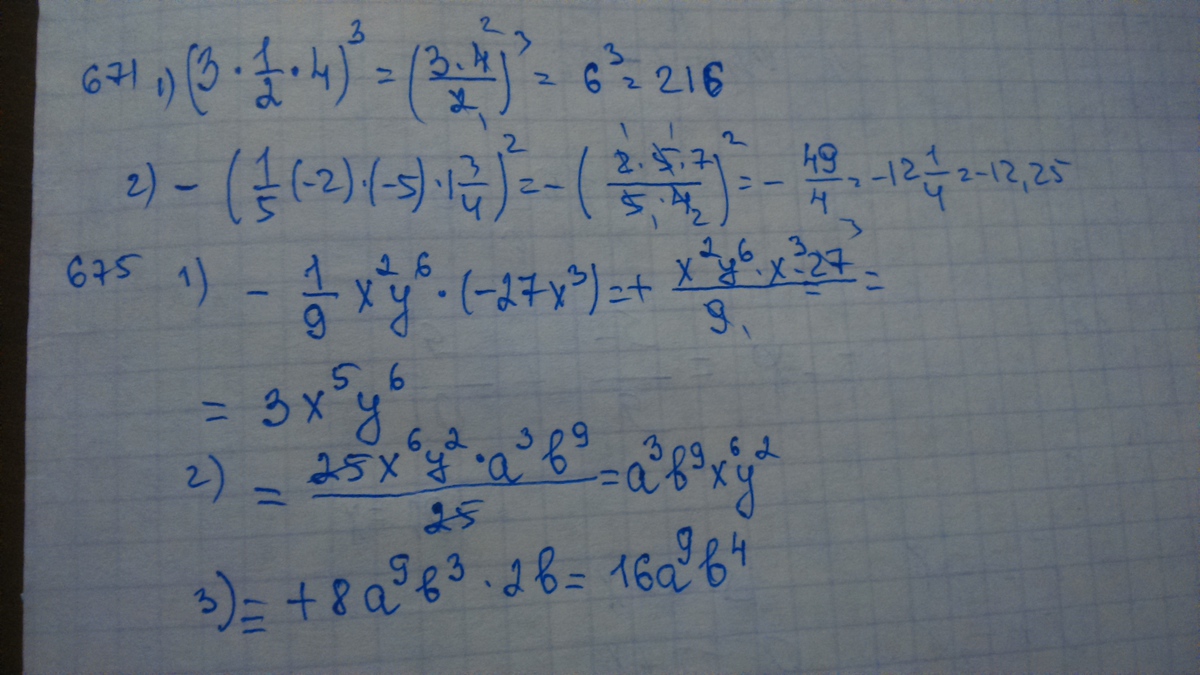 671 1) (3 · 1/2 · 4)³ = (3 · 4² / 2₁)³ = 6³ = 216
2) – (1/5 (-2) · (-5) · 1 3/4)² = – (2¹ · 5¹ · 7 / 5₁ · 4₂)² = – 49/4 = -12 1/4 = -12,25
675 1) – 1/9 x²y⁶ · (-27x³) = + x²y⁶ · x³ · 27³ / 9₁ =
= 3x⁵y⁶
2) = 25x⁶y² · a³b⁹ / 25 = a³b⁹x⁶y²
3) = + 8a⁹b³ · 2b = 16a⁹b⁴